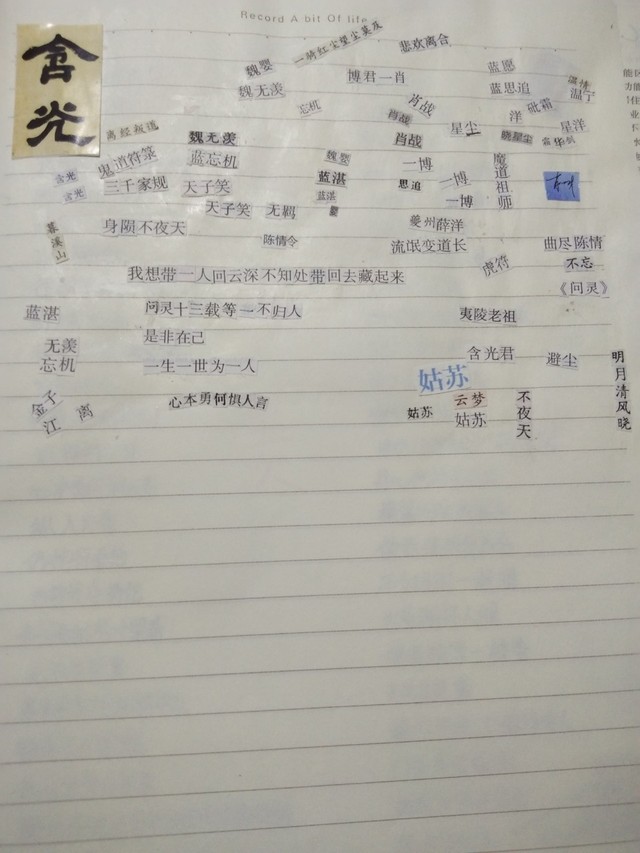 Record A bit Of life
含光
一骑红尘望尘莫及
悲欢离合
魏婴
魏无羡
博君一肖
蓝愿
蓝思追
温情
温宁
忘机
肖战
肖战
洋
砒霜
离经叛道
魏无羡
肖战
星尘
晓星尘
星洋
含光
含光
鬼道符箓
蓝忘机
魏婴
一博
魔道祖师
三千家规
天子笑
蓝湛
蓝湛
思追
一博
一博
天子笑
无羁
夔州薛洋
暮溪山
身陨不夜天
陈情令
流氓变道长
曲尽陈情
我想带一人回云深不知处带回去藏起来
虎符
不忘
《问灵》
蓝湛
问灵十三载等一不归人
夷陵老祖
是非在己
无羡
忘机
一生一世为一人
含光君
避尘
明月清风晓
姑苏
金子
江
离
心本勇何惧人言
姑苏
云梦
姑苏
不夜天